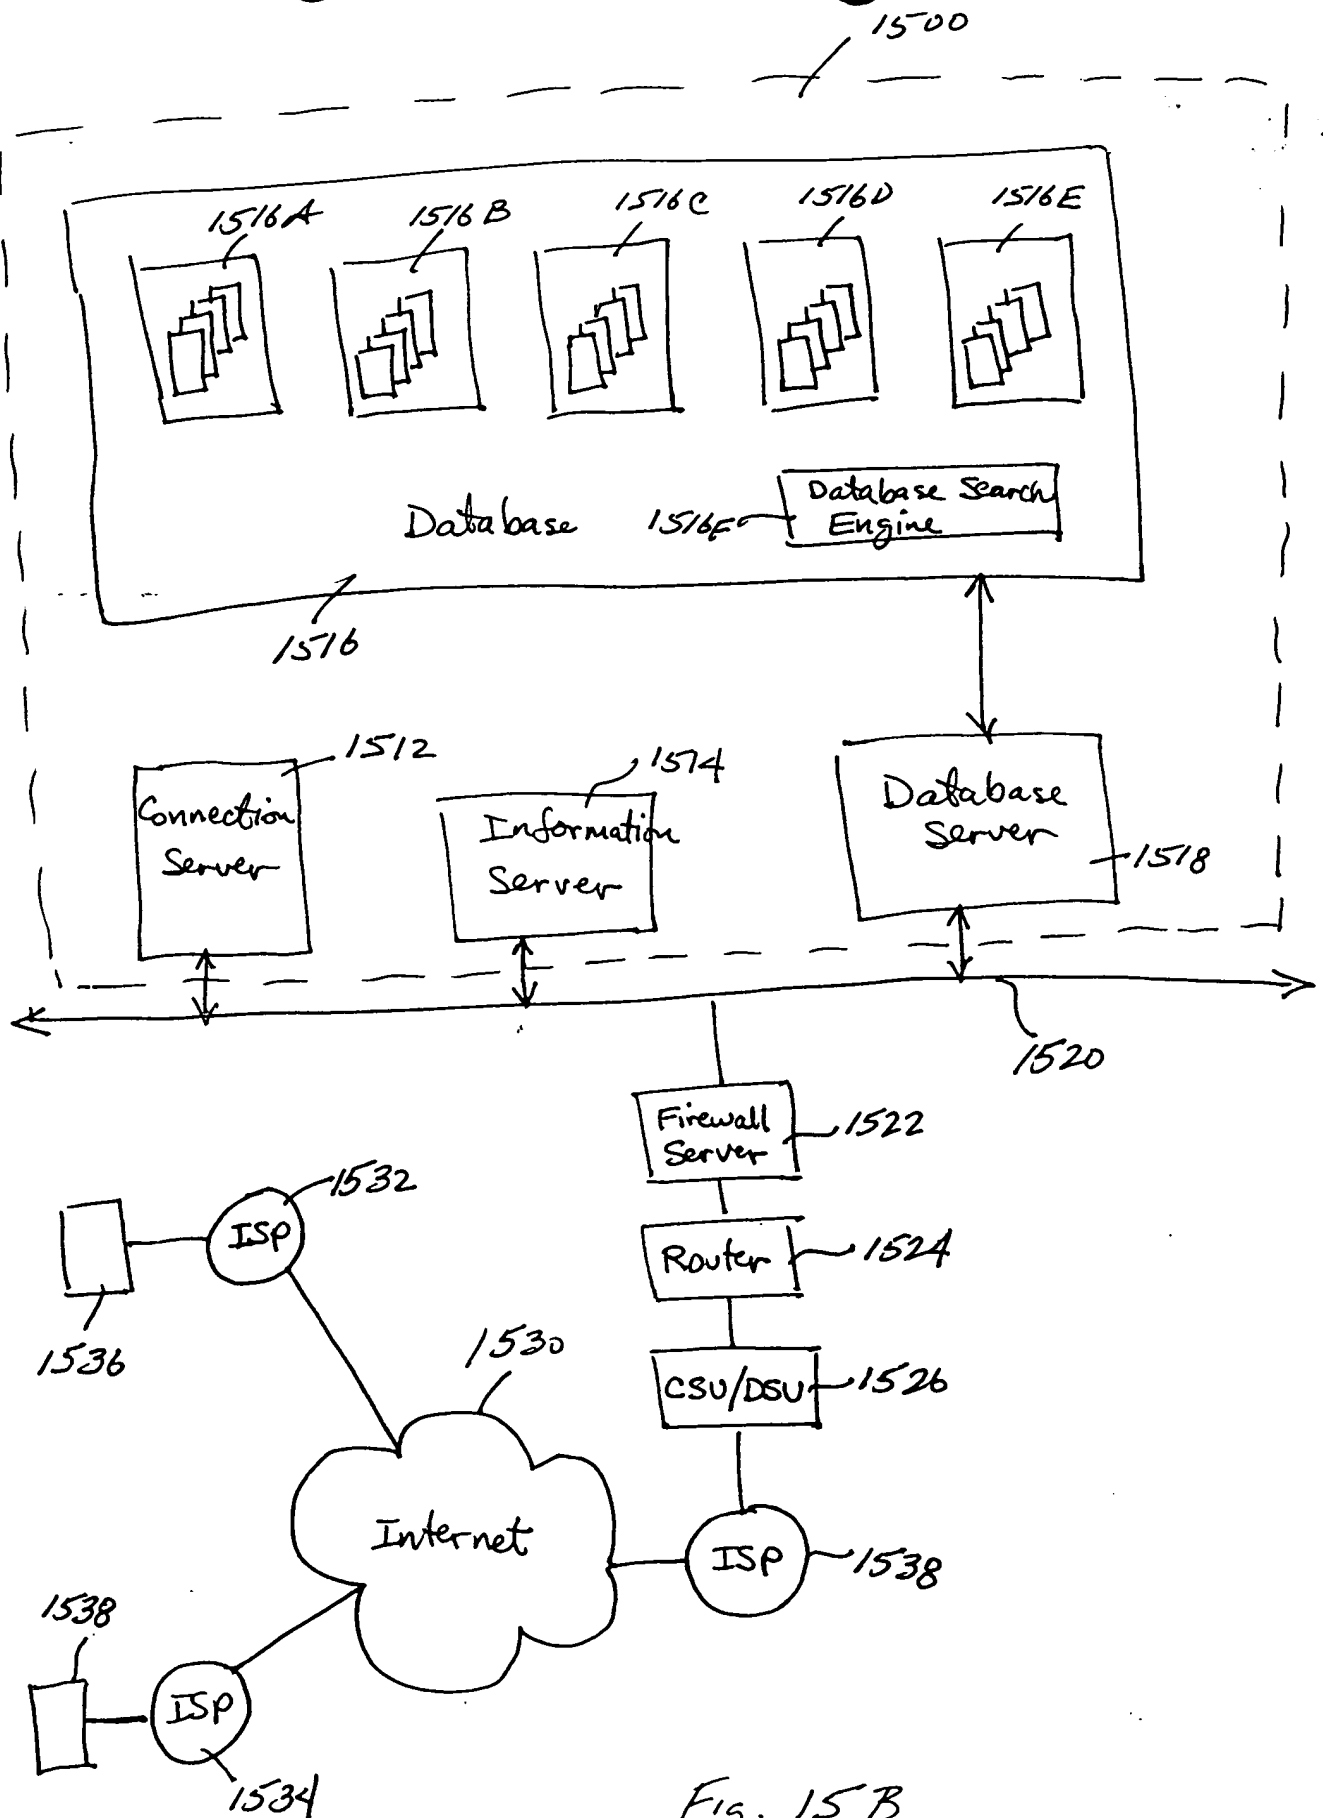 1500
1516A
1516B
1516C
1516D
1516E
Database
1516F
Database Search
Engine
1516
1512
Connection
Server
1514
Information
Server
Database
Server
1518
1520
Firewall
Server
1522
Router
1524
CSU/DSU
1526
ISP
1532
1536
1530
Internet
ISP
1538
1538
ISP
1534
Fig. 15B